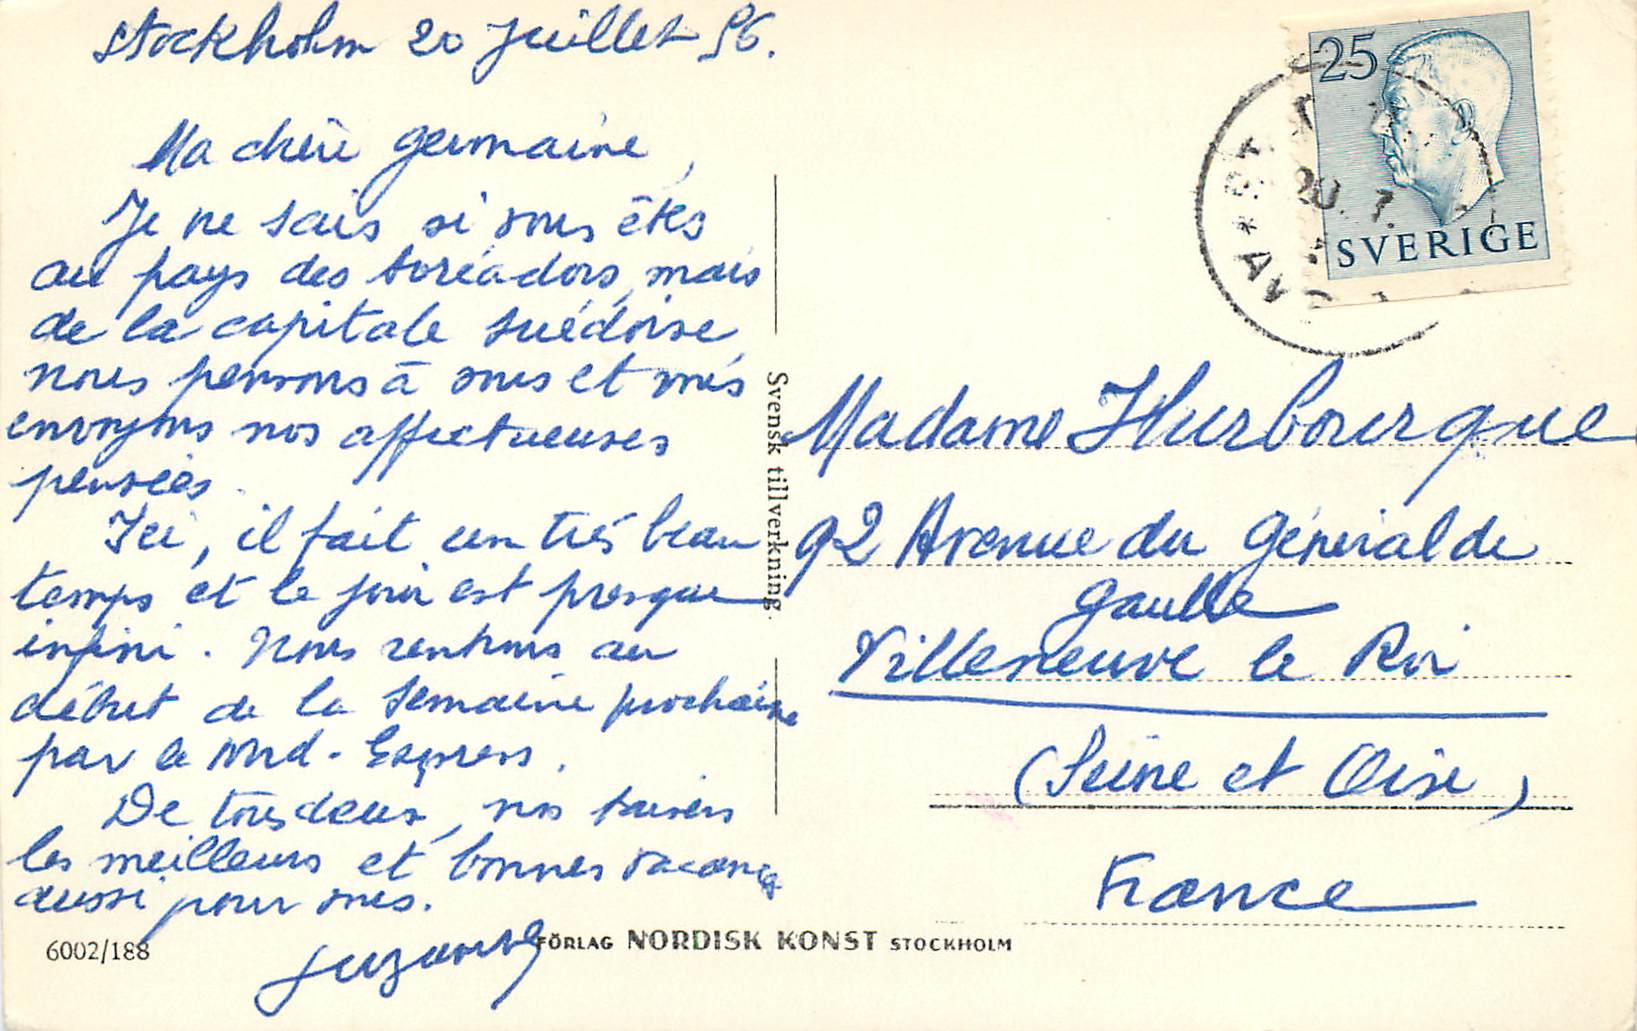 Stockholm 20 Juillet 56.
Ma chère Germaine,
Je ne sais si vous êtes
au pays des toréadors, mais
de la capitale suédoise,
nous pensons à vous et vous
envoyons nos affectueuses
pensées.
Ici, il fait un très beau
temps et le jour est presque
infini. Nous rentrons au
début de la semaine prochaine
par le Nord-Express.
De tous deux, nos baisers
les meilleurs et bonnes vacances
aussi pour vous.
Suzanne
6002/188
FÖRLAG NORDISK KONST STOCKHOLM
Svensk tillverkning.
25
SVERIGE
20. 7.
Madame Hurbourque
92 Avenue du Général de
Gaulle
Villeneuve le Roi
(Seine et Oise)
France